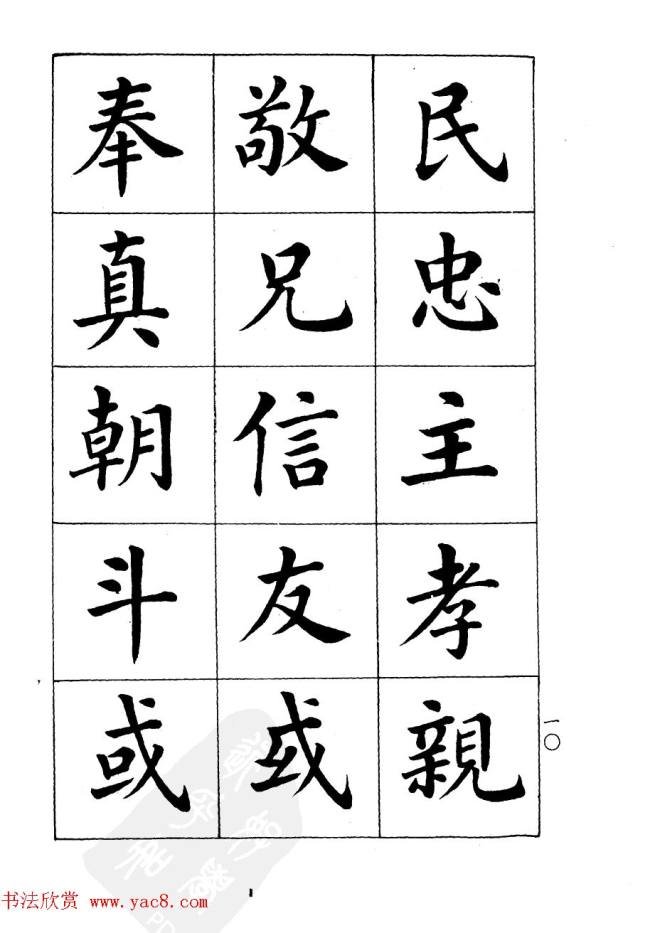 民忠主孝親
敬兄信友或
奉真朝斗或
一〇
书法欣赏 www.yac8.com